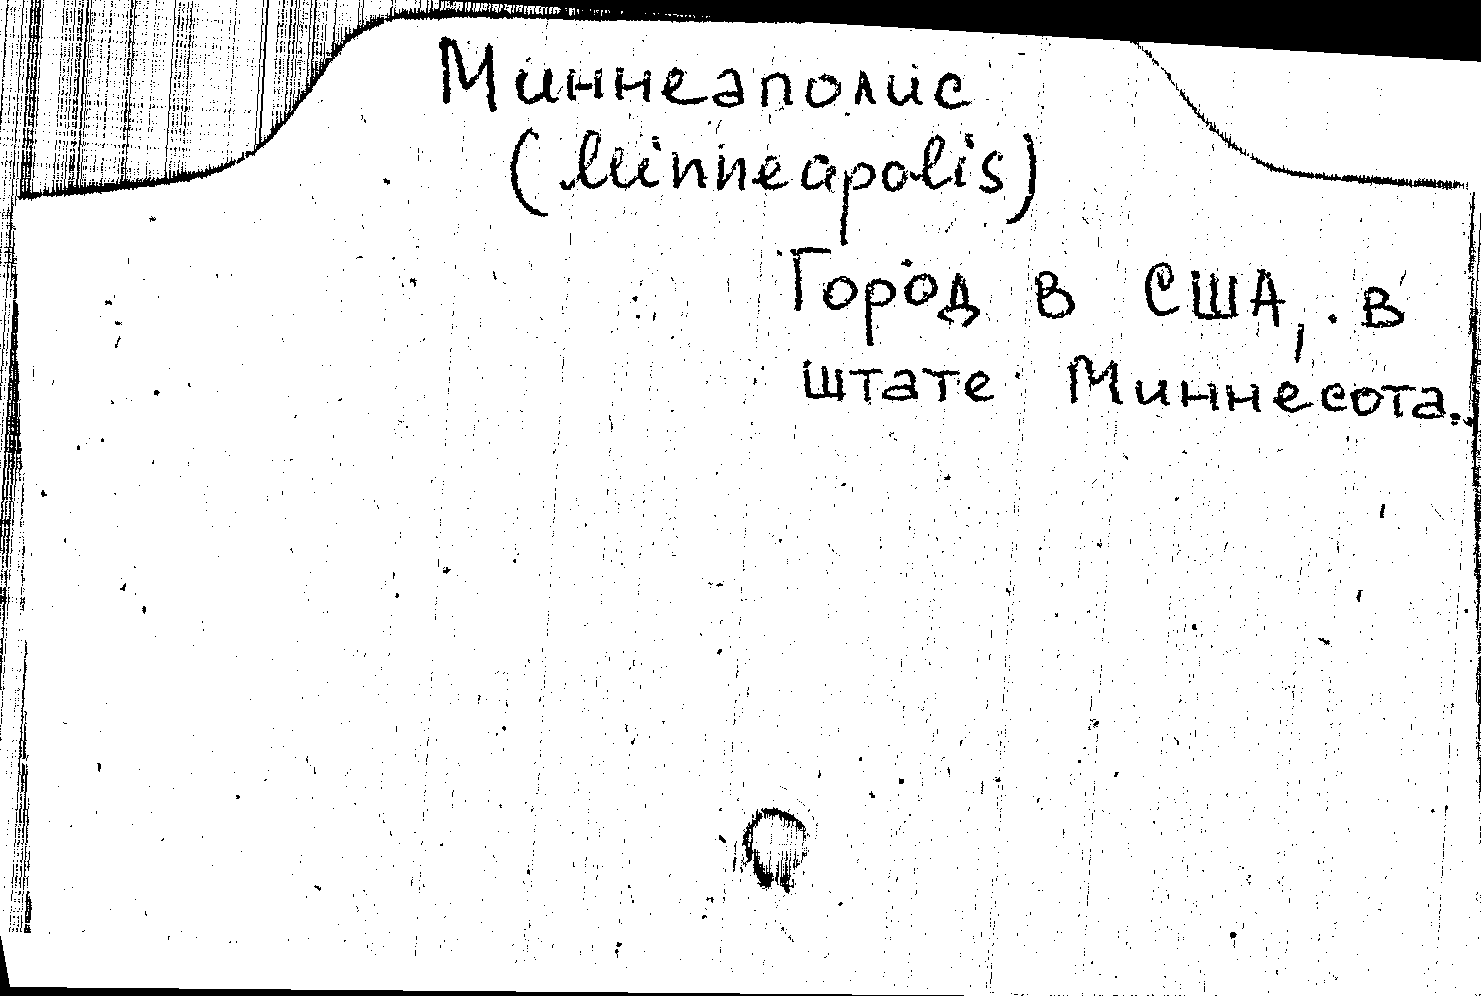 Миннеаполис
(Minneapolis)
Город в США, в
штате Миннесота.